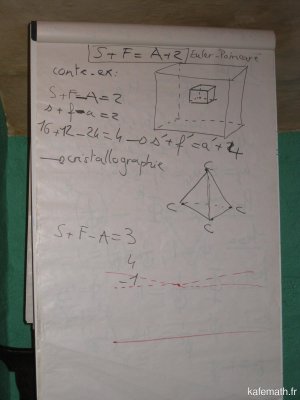 S + F = A + 2 Euler-Poincaré
contre-ex:
S + F - A = 2
s + f - a = 2
16 + 12 - 24 = 4 → s' + f' = a' + 4
→ cristallographie
C
C C
C
S + F - A = 3
4
-1
kafemath.fr